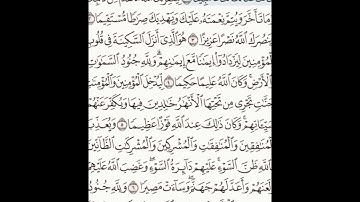 مَا تَأَخَّرَ وَيُتِمَّ نِعْمَتَهُۥ عَلَيْكَ وَيَهْدِيَكَ صِرَٰطًا مُّسْتَقِيمًا ٢
يَنصُرَكَ ٱللَّهُ نَصْرًا عَزِيزًا ٣ هُوَ ٱلَّذِىٓ أَنزَلَ ٱلسَّكِينَةَ فِى قُلُوبِ
ٱلْمُؤْمِنِينَ لِيَزْدَادُوٓا۟ إِيمَٰنًا مَّعَ إِيمَٰنِهِمْ ۗ وَلِلَّهِ جُنُودُ ٱلسَّمَٰوَٰتِ
ٱلْأَرْضِ ۚ وَكَانَ ٱللَّهُ عَلِيمًا حَكِيمًا ٤ لِّيُدْخِلَ ٱلْمُؤْمِنِينَ وَٱلْمُؤْمِنَٰتِ
جَنَّٰتٍ تَجْرِى مِن تَحْتِهَا ٱلْأَنْهَٰرُ خَٰلِدِينَ فِيهَا وَيُكَفِّرَ عَنْهُمْ
سَيِّـَٔاتِهِمْ ۚ وَكَانَ ذَٰلِكَ عِندَ ٱللَّهِ فَوْزًا عَظِيمًا ٥ وَيُعَذِّبَ
ٱلْمُنَٰفِقِينَ وَٱلْمُنَٰفِقَٰتِ وَٱلْمُشْرِكِينَ وَٱلْمُشْرِكَٰتِ ٱلظَّآنِّينَ
ٱللَّهِ ظَنَّ ٱلسَّوْءِ ۚ عَلَيْهِمْ دَآئِرَةُ ٱلسَّوْءِ ۖ وَغَضِبَ ٱللَّهُ عَلَيْهِمْ
لَعَنَهُمْ وَأَعَدَّ لَهُمْ جَهَنَّمَ ۖ وَسَآءَتْ مَصِيرًا ٦ وَلِلَّهِ جُنُودُ